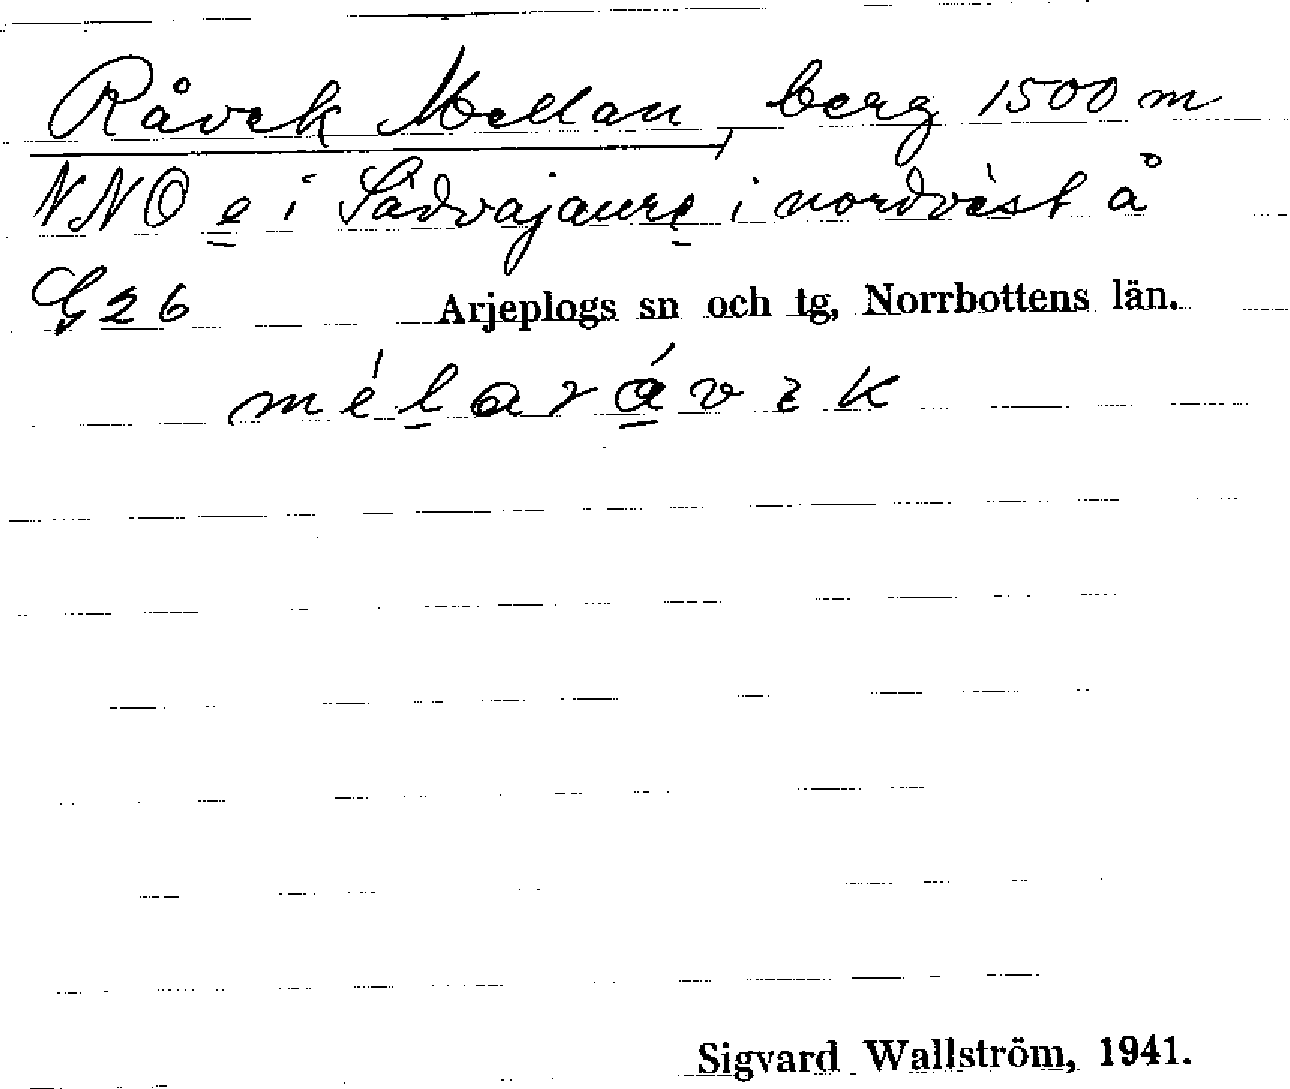 Råvek Mellan, berg 1500 m
NNO e i Sädvajaure i nordväst å
G26 Arjeplogs sn och tg, Norrbottens län.
mélarávək
Sigvard Wallström, 1941.